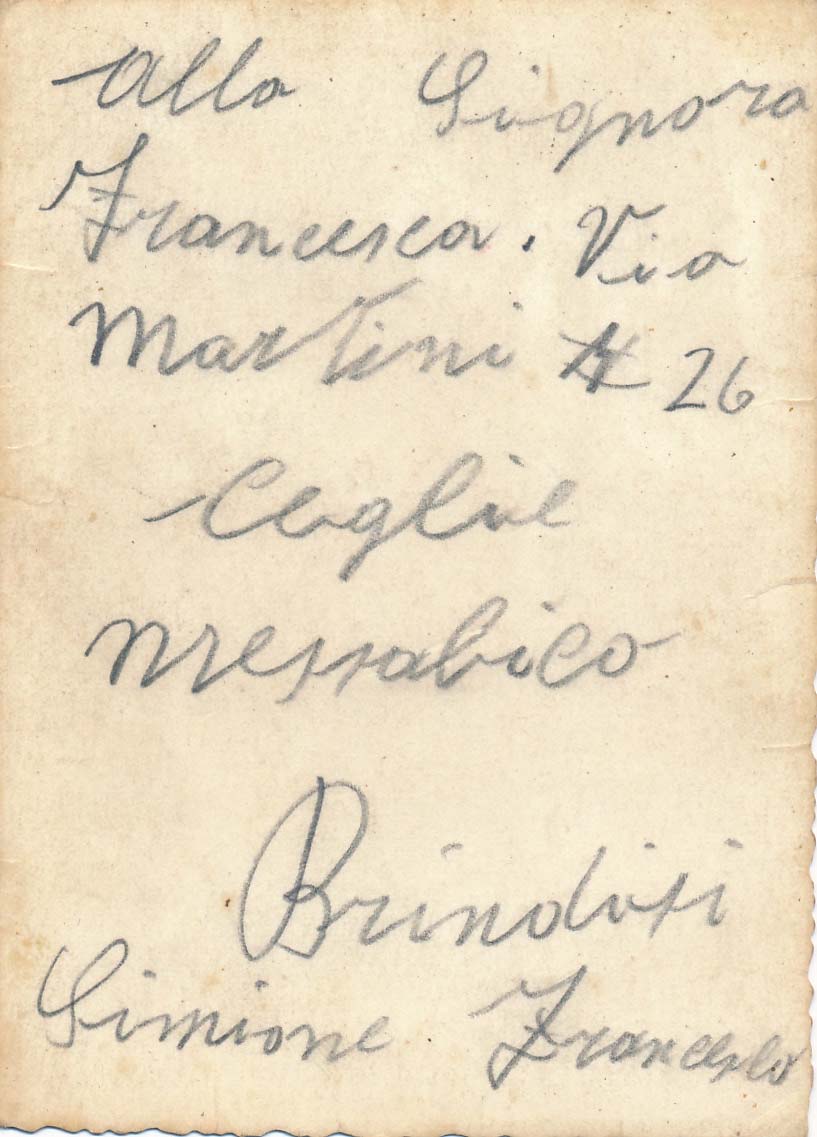 Alla Signora
Francesca. Via
Martini N 26
Ceglie
Messabico
Brindisi
Simione Francesco